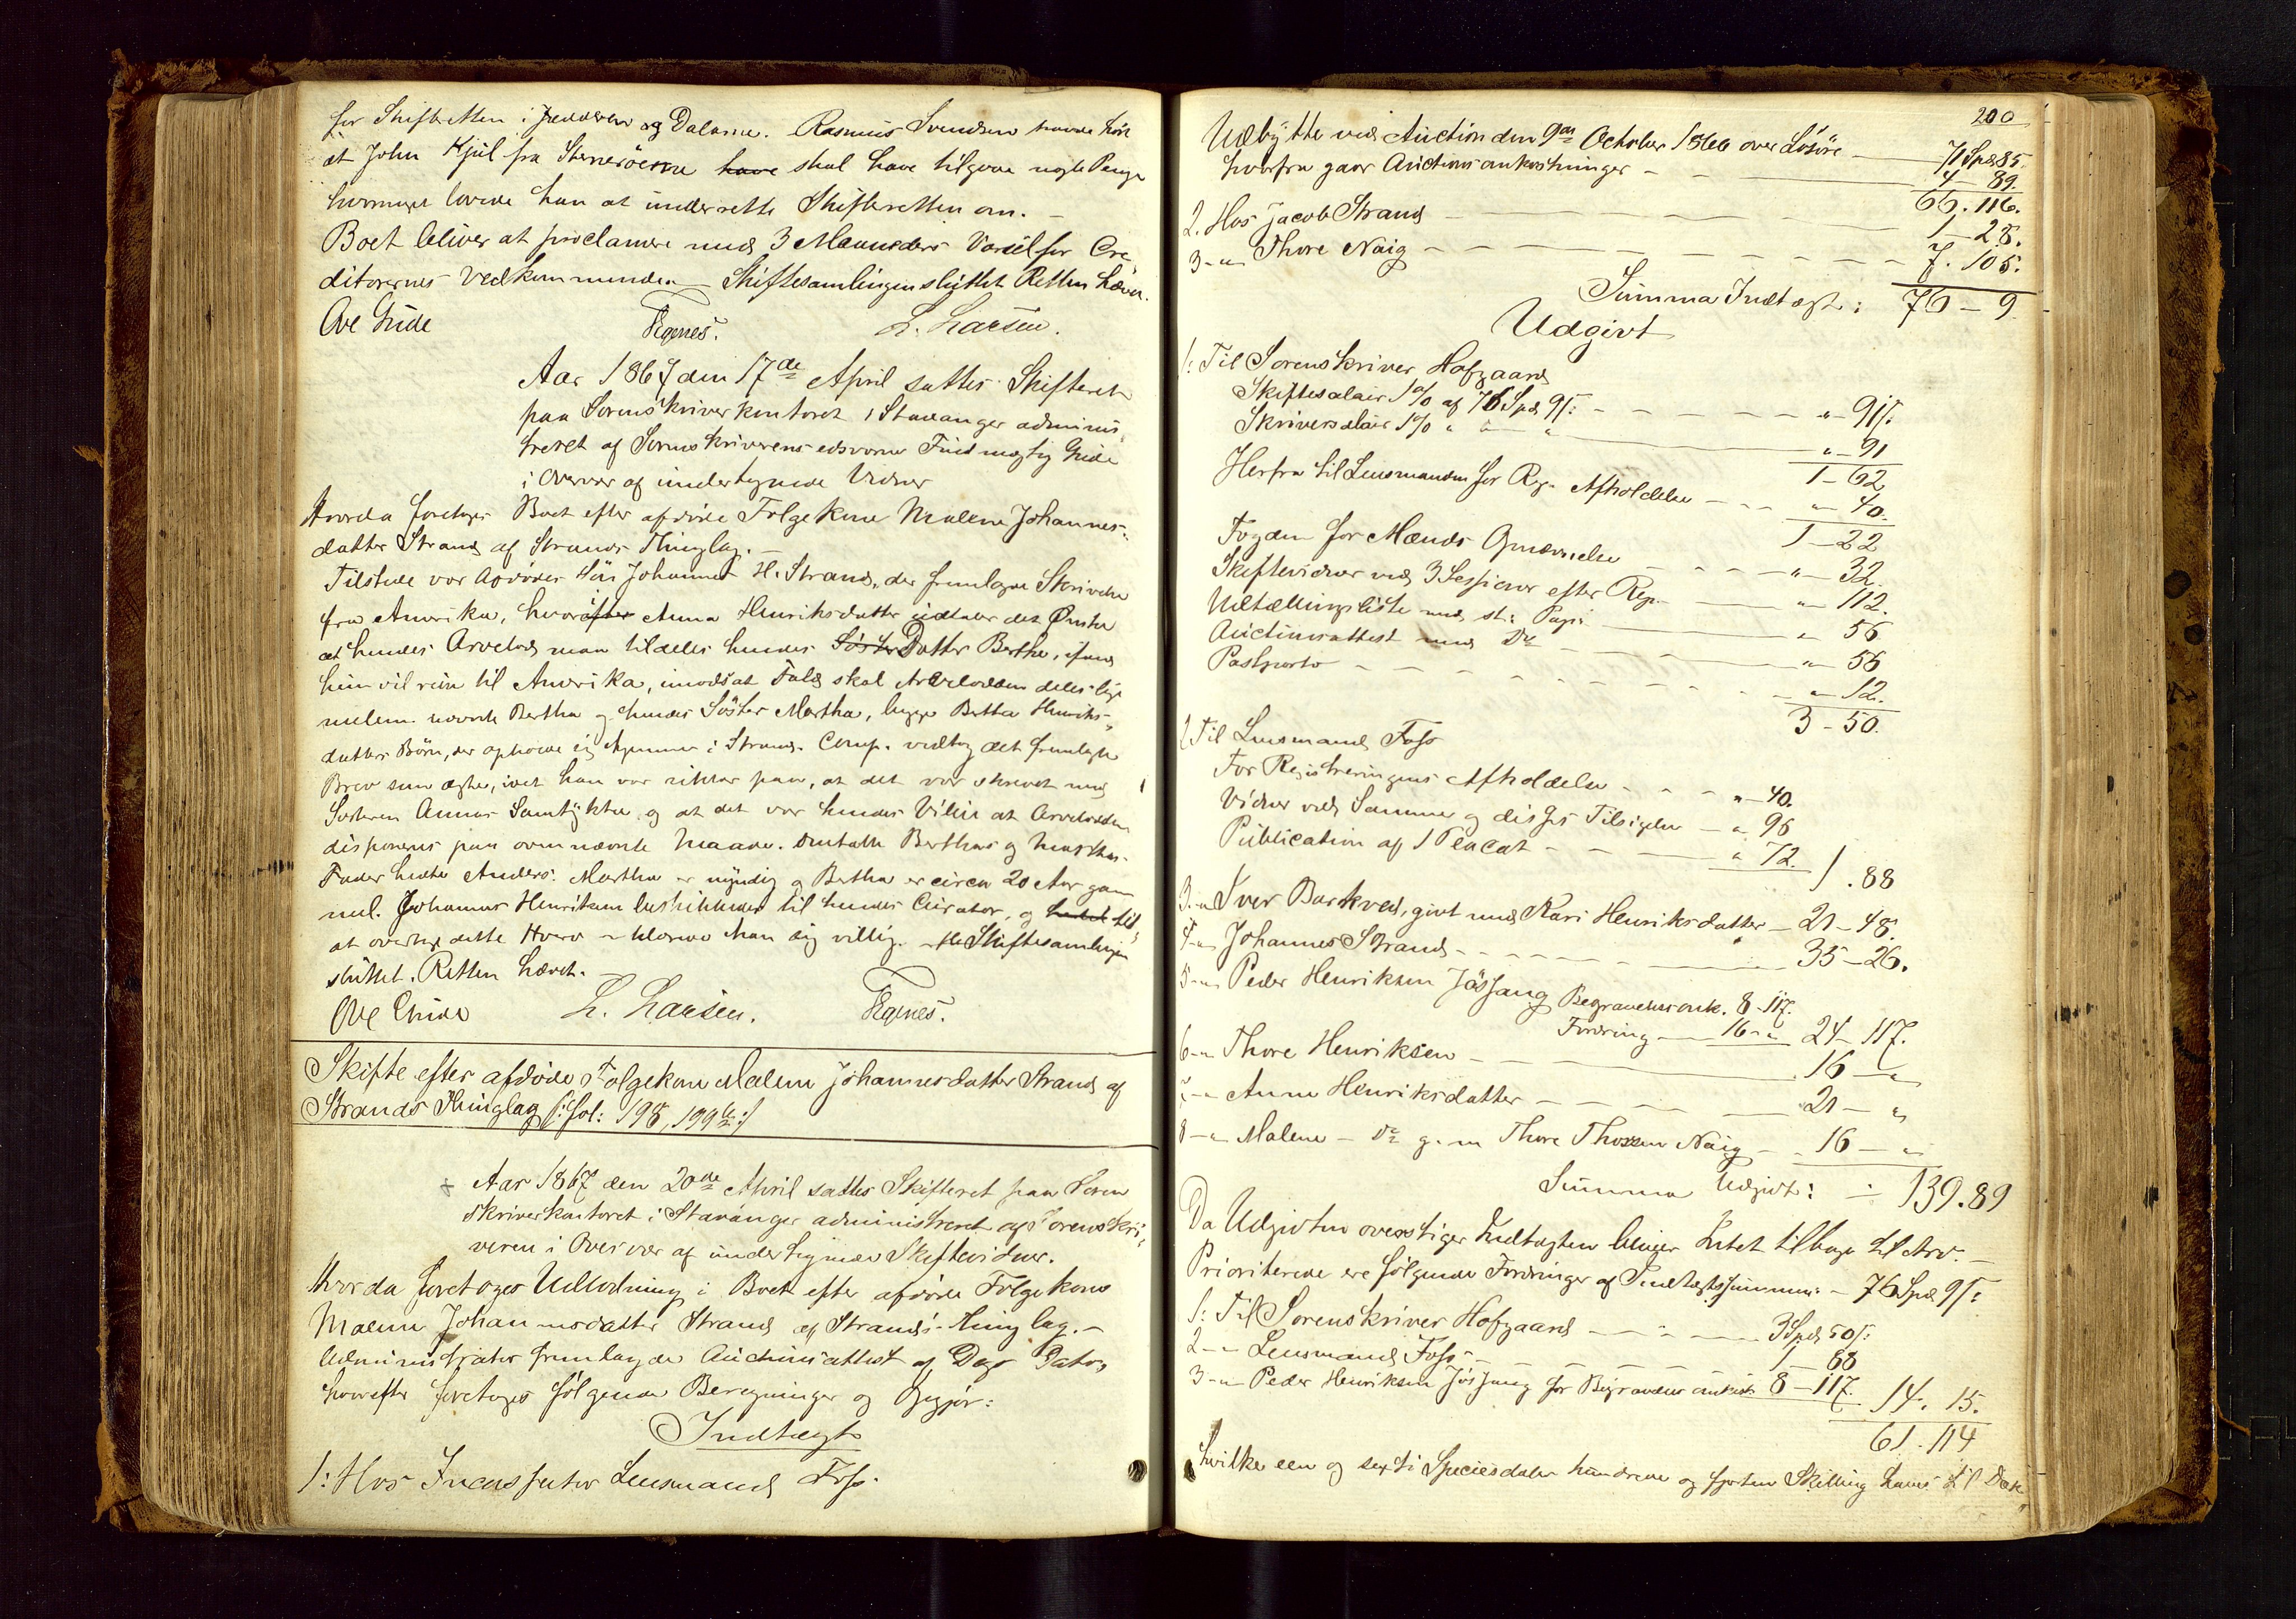 for Skifteretten i Jæderen og Dalarne. Rasmus Svendsen havde hört
at John Kjül fra Sterneröerne have skal have tilgode nogle Penge
hvormeget lovede han at underrette Skifteretten om. —
Boet bliver at proclamere med 3 Maaneders Varsel for Cre
ditorernes Vedkommende. — Skiftesamlingen sluttet Retten hævet.
Ove Gude Egenes. L. Larsen.
Aar 1867 den 17de April sattes Skifteret
paa Sorenskriverkontoret i Stavanger adminis
treret af Sorenskriverens edsvorne Fuldmægtig Gude
i Overvær af undertegnede Vidner
Hvorda foretoges Boet efter afdöde Folgekone Malene Johannes-
datter Strand af Strands Thinglag. —
Tilstede var Afdödes Sön Johannes H. Strand, der fremlagde Skrivelse
fra Amerika, hvorefter Anna Henriksdatter udtaler det Ønske
at hendes Arvelod maa tildeles hendes Söster Datter Berthe, ifald
hun vil reise til Amerika, imodsat Fald skal Arvelodden deles lige
mellem nævnte Bertha og hendes Söster Martha, begge Bertha Henriks-
datters Börn, der opholde sig hjemme i Strand. Comp. vedtog det fremlagte
Brev som ægte, idet han var sikker paa, at det var skrevet med
Söstren Annas Samtykke og at det var hendes Villie at Arvelodden
disponeres paa ovennævnte Maade. Omtalte Berthas og Marthas
Fader hedte Anders. Martha er myndig og Bertha er circa 20 Aar gam
mel. Johannes Henriksen beskikkedes til hendes Curator, og til
at overtage dette Hverv erklærede han sig villig. — Skiftesamlingen
sluttet. Retten hævet. —
Ove Gude L. Larsen. Egenes.
Skifte efter afdöde Folgekone Malene Johannesdatter Strand af
Strands Thinglag /: fol: 198, 199 :/
+ Aar 1867 den 20de April sattes Skifteret paa Soren
skriverkontoret i Stavanger administreret af Sorenskri-
veren i Overvær af undertegnede Skiftevidner.
Hvorda foretoges Udlodning i Boet efter afdöde Folgekone
Malene Johannesdatter Strand af Strands Thinglag. —
Administrator fremlagde Auctionsattest af Dags Dato,
hvorefter foretoges fölgende Beregninger og Opgjör:
Indtægt
1: Hos Incassator Lensmand Foss.
200
Udbytte ved Auction den 9de October 1866 over Lösöre — 71 Spd 85.
hvorfra gaar Auctionsomkostninger — 4 — 89.
66. 116.
2. Hos Jacob Strand — 1 — 28.
3 - " Thore Naig — 7. 105.
Summa Indtægt: 76 — 9
Udgivt
1: Til Sorenskriver Hofgaard
Skiftesalair 1% af 76 Spd 9 s: — " — 91 s:
Skriversalair 1% " " " — " — 91
1 — 62
Herfra til Lensmanden for Reg. Afholdelse — " — 40.
1 — 22
Fogden for Mænds Opnævnelse — " — 32.
Skiftevidner ved 3 Sessioner efter Reg. — " — 112.
Udtællingsliste med st: Papir — " 56
Auctionsattest med Do — " — 56
Postporto — " — 12.
3 — 50.
2 Til Lensmand Foss
For Registreringens Afholdelse — " — 40.
Vidner ved Samme og disses Tilsigelse — " 96
Publication af 1 Placat — " 72. 1. 88
3 - " Iver Barkved, givt med Kari Henriksdatter — 21 — 48.
4 - " Johannes Strand — 35 — 26.
5 - " Peder Henriksen Jössang Begravelsesomk. 8 - 117.
Fordring — 16 - " 24 — 117.
6 - " Thore Henriksen — 16 — "
7 - " Anne Henriksdatter — 21 — "
8 - " Malene — Do g. m. Thore Thorsen Naig — 16 — "
Summa Udgivt: 139. 89
Da Udgivten overstiger Indtægten bliver Intet tilbage til Arv. —
Prioriterede ere fölgende Fordringer af Indtægtssummen — 76 Spd 9 s:
1: Til Sorenskriver Hofgaard — 3 Spd 50 s:
2 - " Lensmand Foss — 1 — 88
3 - " Peder Henriksen Jössang for Begravelsesomkost. 8 — 117. 14. 15.
61. 114
hvilke een og sexti Speciedaler hundrede og fjorten Skilling haves til Dæk